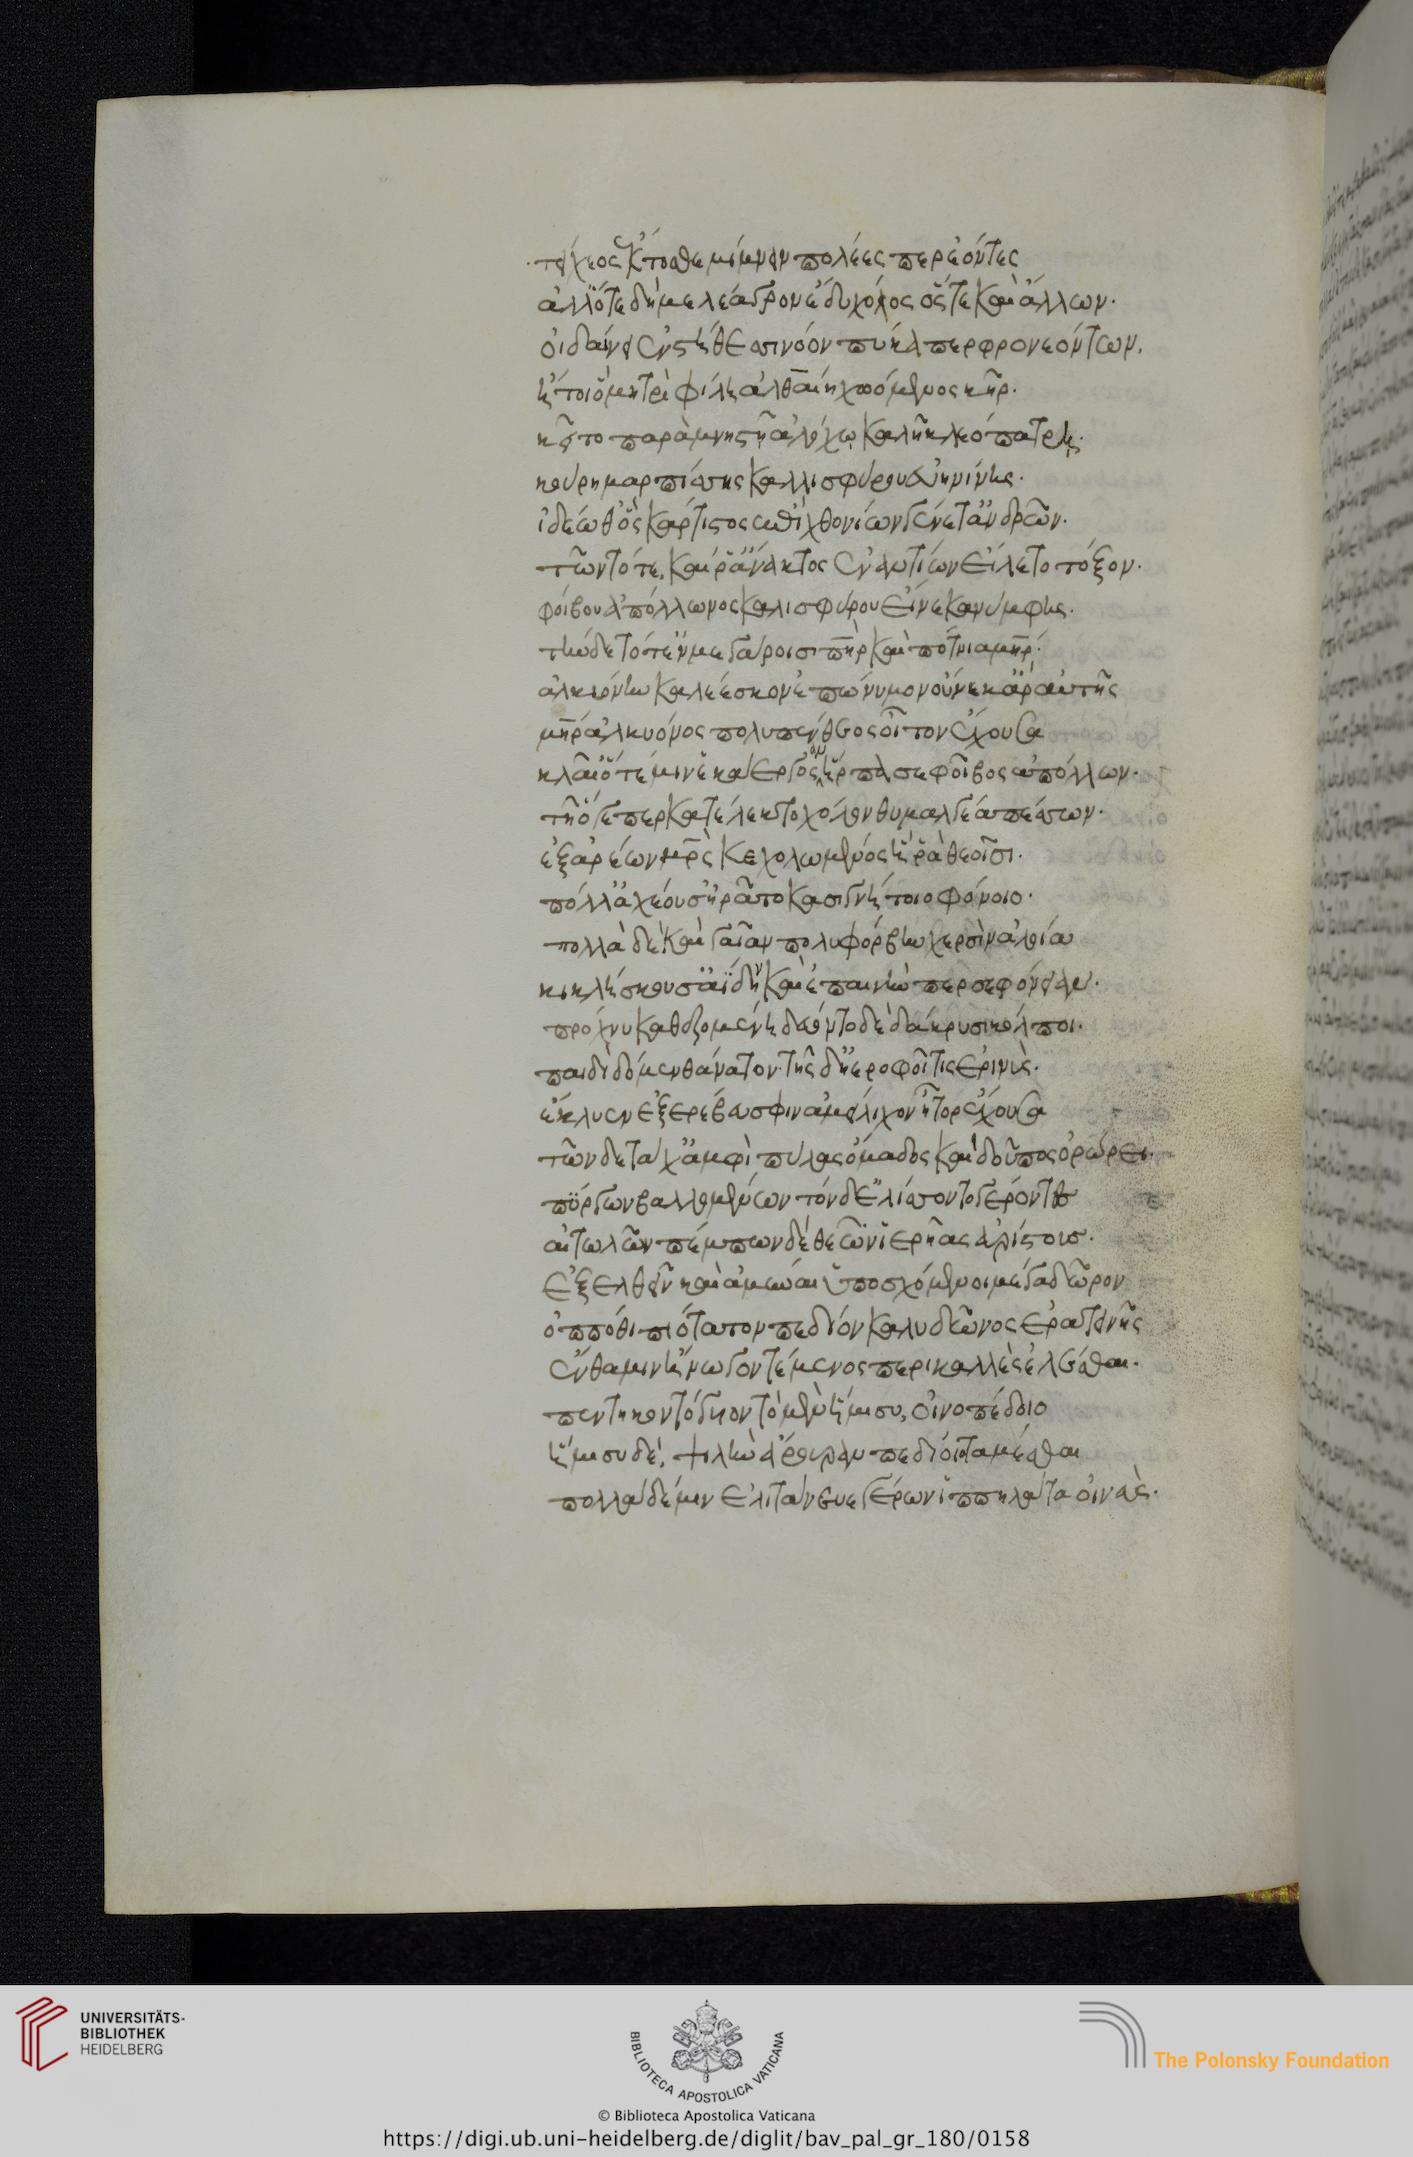 τείχεος ἔκτοσθε μίμνειν πολέες περ ἐόντες
ἀλλ' ὅτε δὴ μελέαγρον ἔδυ χόλος ὅς τε καὶ ἄλλων.
οἰδάνει ἐν στήθεσι νόον πύκα περ φρονεόντων.
ἤτοι ὃ μητρὶ φίλη ἀλθαίη χωόμενος κῆρ.
κεῖτο παρὰ μνηστῇ ἀλόχῳ καλῇ κλεοπάτρῃ.
κούρη μαρπίσσης καλλισφύρου εὐηνίνης.
ἴδεώ θ' ὃς κάρτιστος ἐπιχθονίων γένετ' ἀνδρῶν.
τῶν τότε, καί ῥα ἄνακτος ἐναντίον εἵλετο τόξον.
φοίβου ἀπόλλωνος καλισφύρου εἵνεκα νύμφης.
τὴν δὲ τότ' ἐν μεγάροισι πηρ καὶ πότνια μηρ.
ἀλκυόνην καλέεσκον ἐπώνυμον οὕνεκ' ἄρ' αὐτῆς
μηρ ἀλκυόνος πολυπενθέος οἶτον ἔχουσα
κλαῖ' ὅτέ μιν ἑκάεργος ἀνήρπασε φοῖβος ἀπόλλων.
τῇ ὅ γε περ κατέλεκτο χόλον θυμαλγέα πέσσων.
ἐξ ἀρέων μρς κεχολωμένος ἥ ῥα θεοῖσι.
πόλλ' ἀχέουσ' ἠρᾶτο κασιγνήτοιο φόνοιο.
πολλὰ δὲ καὶ γαῖαν πολυφόρβην χερσὶν ἀλοία
κικλήσκουσ' ἀΐδην καὶ ἐπαινὴν περσεφόνειαν.
πρόχνυ καθεζομένη δεύοντο δὲ δάκρυσι κόλποι.
παιδὶ δόμεν θάνατον. τῆς δ' ἠεροφοῖτις ἐρινὺς.
ἔκλυεν ἐξ ἐρέβευσφιν ἀμείλιχον ἦτορ ἔχουσα
τῶν δὲ τάχ' ἀμφὶ πύλας ὅμαδος καὶ δοῦπος ὀρώρει.
πύργων βαλλομένων τόν δ' ἐλίσσοντο γέροντες
αἰτωλῶν πέμπων δὲ θεῶν ἱερῆας ἀρίστους.
ἐξελθεῖν καὶ ἀμῦναι ὑποσχόμενοι μέγα δῶρον
ὁππόθι πιότατον πεδίον καλυδῶνος ἐραστεινῆς
ἔνθα μιν ἤνωγον τέμενος περικαλλὲς ἑλέσθαι.
πεντηκοντόγυον τὸ μὲν ἥμισυ, οἰνοπέδοιο
ἥμισυ δὲ, ψιλὴν ἄροσιν πεδίοιο ταμέσθαι
πολλὰ δέ μιν ἐλιτάνευε γέρων ἱππηλάτα οἰνεὺς.
UNIVERSITÄTS-
BIBLIOTHEK
HEIDELBERG
BIBLIOTECA APOSTOLICA VATICANA
The Polonsky Foundation
© Biblioteca Apostolica Vaticana
https://digi.ub.uni-heidelberg.de/diglit/bav_pal_gr_180/0158